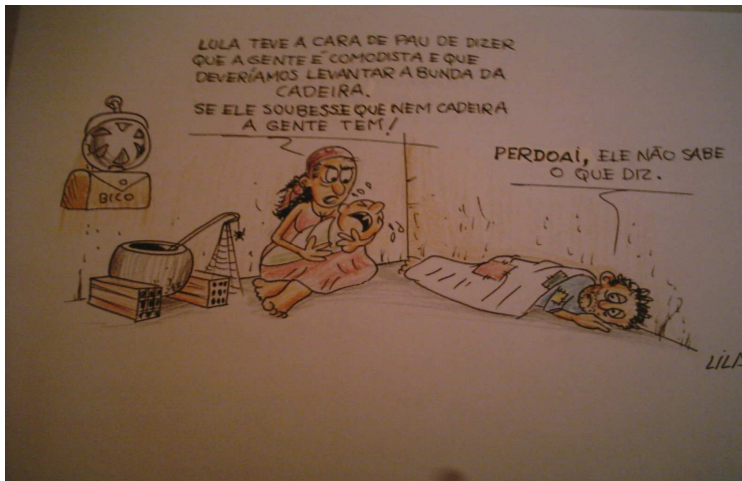 LULA TEVE A CARA DE PAU DE DIZER
QUE A GENTE É COMODISTA E QUE
DEVERÍAMOS LEVANTAR A BUNDA DA
CADEIRA.
SE ELE SOUBESSE QUE NEM CADEIRA
A GENTE TEM!
PERDOAÍ, ELE NÃO SABE
O QUE DIZ.
BICO
LILA